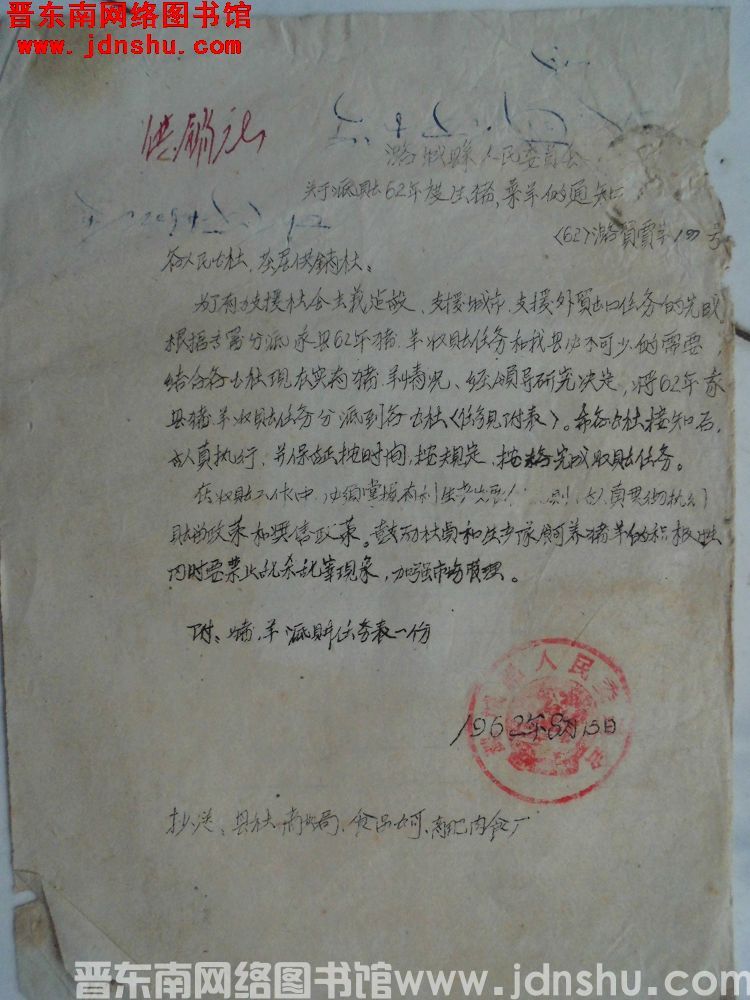 晋东南网络图书馆
www.jdnshu.com
供销社
潞城縣人民委员会
关于派购62年度生猪、菜羊的通知
(62)潞貿雷字 号
各人民公社、基层供銷社。
为了有力支援社会主義建設、支援城市、支援外貿出口任务的完成
根据专署分派我县62年猪、羊收购任务和我县必不可少的需要,
结合各公社现在实有猪、羊情况、经領导研究决定,将62年我
县猪、羊收购任务分派到各公社(任务見附表)。希各公社接知后,
认真执行,并保证按时间,按規定,按格完成收购任务。
在收购工作中,必须掌握有利生产发展 則,认真貫彻执行
购留政策和奖售政策。鼓动社員和生产队飼养猪羊的积极性
同时要禁止乱杀乱宰现象,加强市场管理。
附:猪、羊派购任务表一份
人民委
1962年8月13日
抄送、县社、商业局、食品公司、肉食厂
晋东南网络图书馆www.jdnshu.com